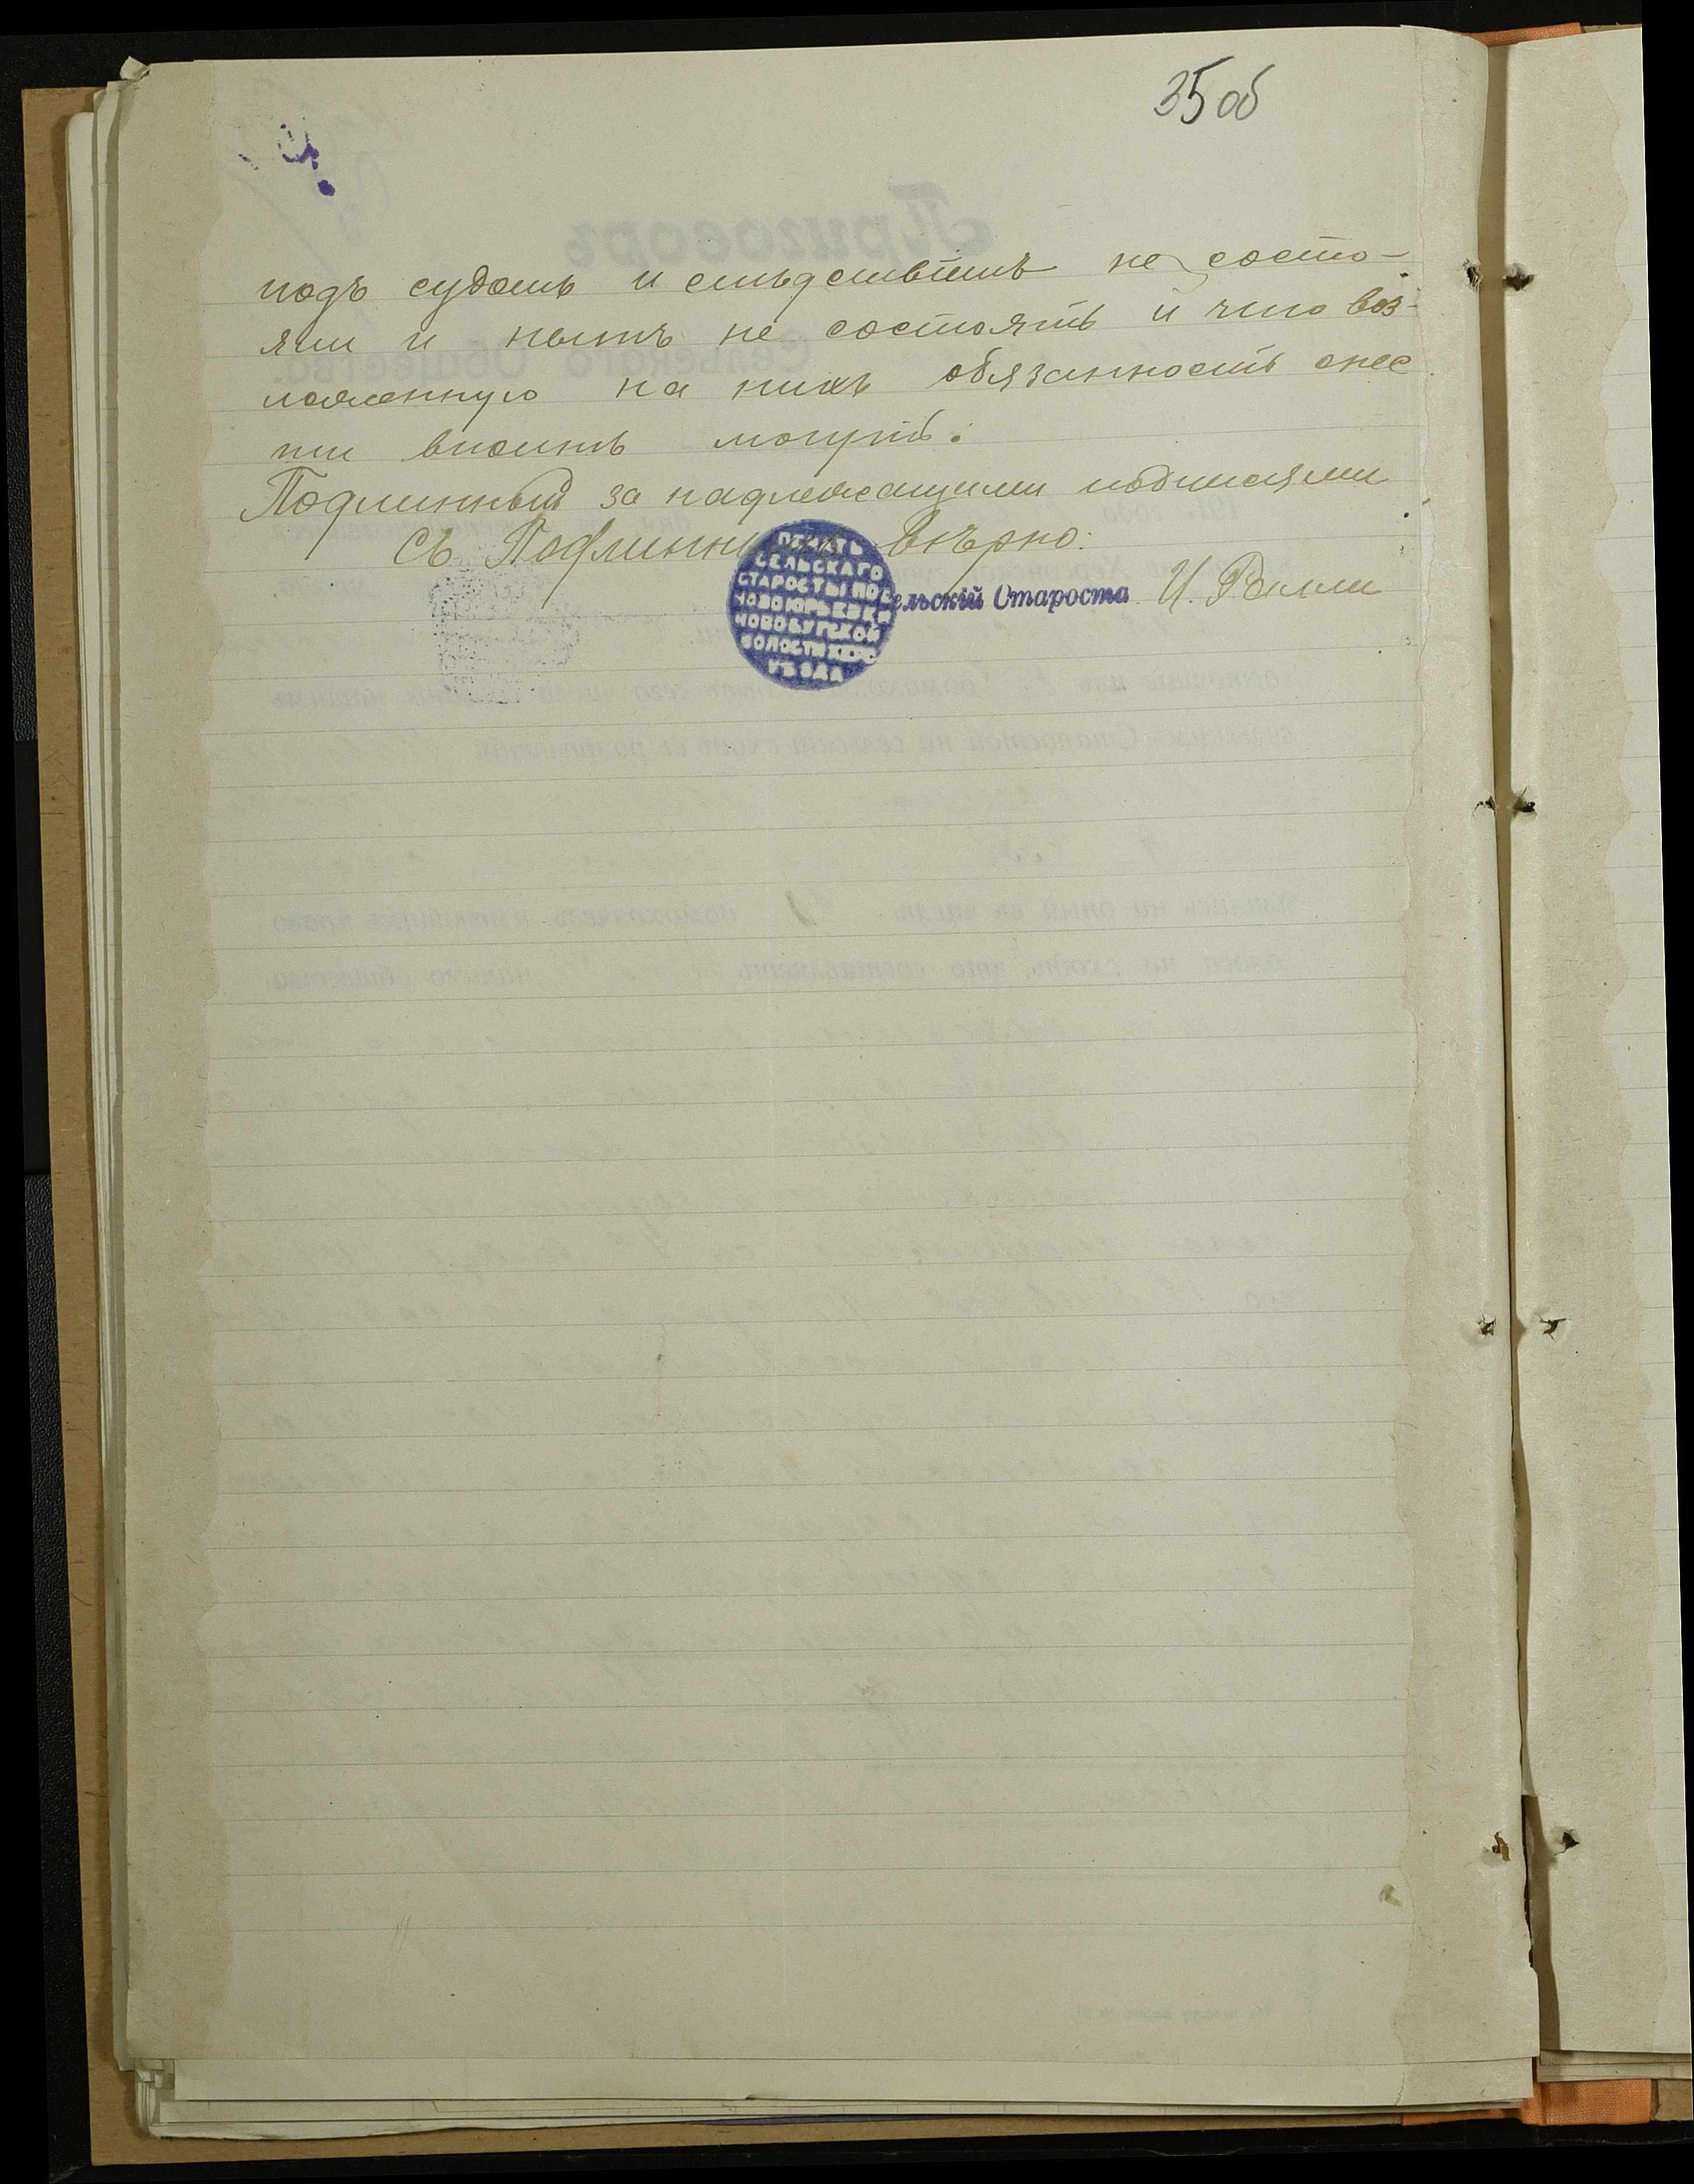 35 об
подъ судомъ и слѣдствіемъ не состо-
яли и нынѣ не состоятъ и что воз-
ложенную на нихъ обязанность снес
ти вполнѣ могутъ.
Подлинный за надлежащими подписями
Съ Подлиннымъ вѣрно:
ельскій Староста И.
ПЕЧАТЬ
СЕЛЬСКАГО
СТАРОСТЫ ПОС
НОВОЮРЬЕВКИ
НОВОБУГСКОЙ
ВОЛОСТИ ХЕРС
УѢЗДА